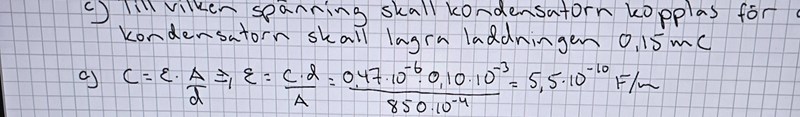 c) Till vilken spänning skall kondensatorn kopplas för
kondensatorn skall lagra laddningen 0,15 mC
a) C = ε · A/d ⇒ ε = C·d/A = 0,47·10⁻⁶·0,10·10⁻³/850·10⁻⁴ = 5,5·10⁻¹⁰ F/m